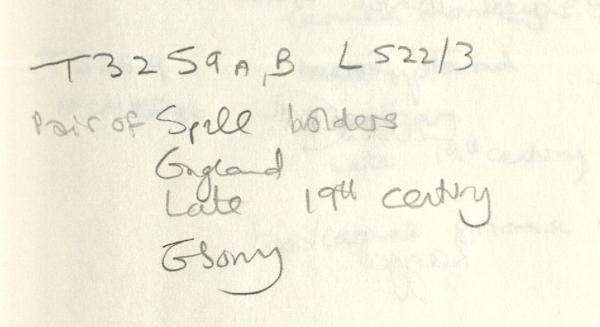 T3259A,B L522/3
Pair of Spill holders
England
Late 19th century
Ebony